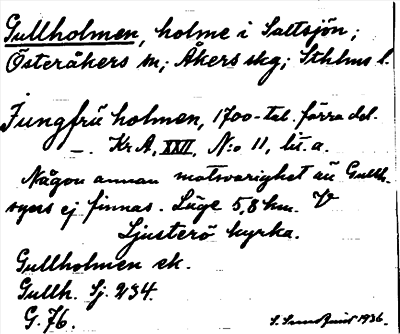 Gullholmen, holme i Saltsjön;
Österåkers sn; Åkers skg; Sthlms l.
Jungfrü holmen, 1700-tal. förra del.
—. Kr A, XXII, N:o 11, lit. a.
Någon annan motsvarighet än Gullh.
synes ej finnas. Läge 5,8 km. V
Ljusterö kyrka.
Gullholmen ek.
Gullh. Sj. 234.
G. 76.
1936.